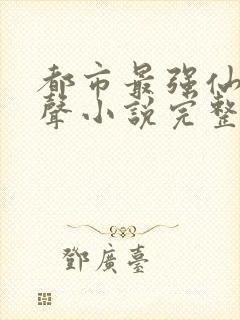 都市最强仙
聲小說完整
鄧廣臺